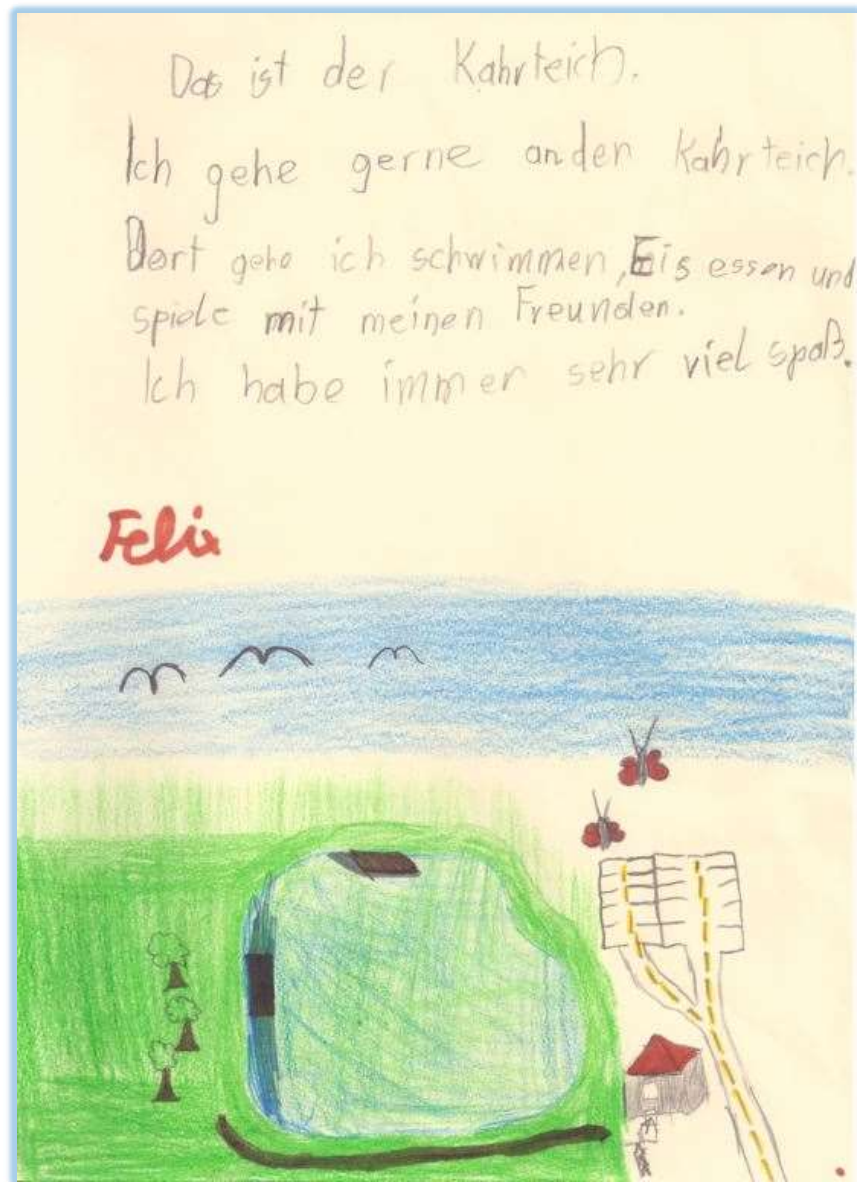 Das ist der Kahrteich.
Ich gehe gerne an den Kahrteich.
Dort gehe ich schwimmen, Eis essen und
spiele mit meinen Freunden.
Ich habe immer sehr viel spaß.
Felix